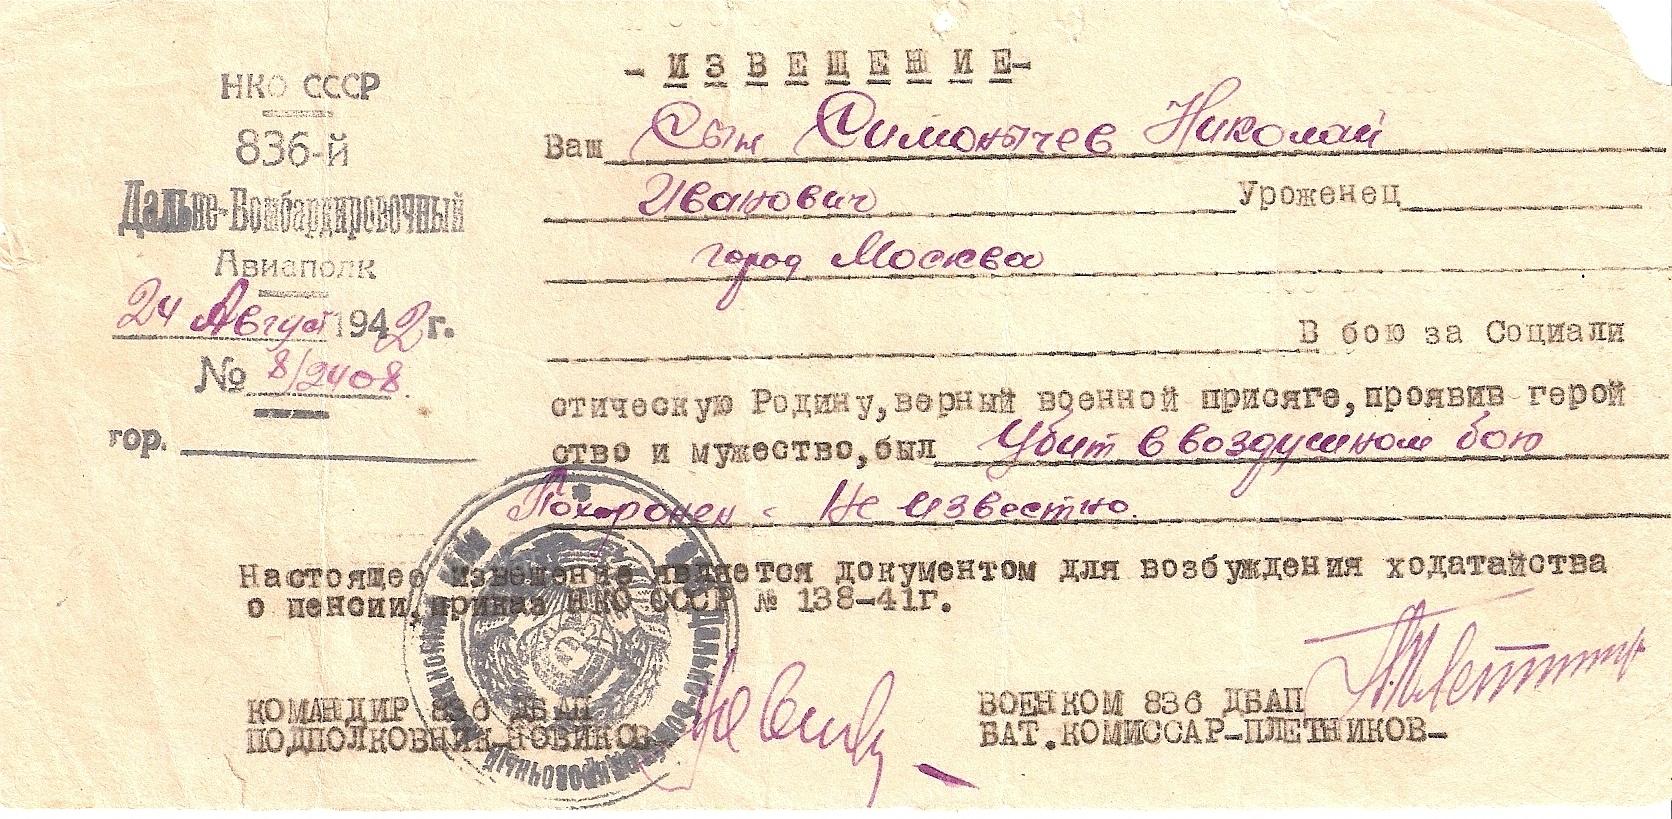 НКО СССР
836-й
Дальне-Бомбардировочный
Авиаполк
24 Август 1942 г.
№ 8/2408.
гор.
- И З В Е Щ Е Н И Е -
Ваш Сын Симонычев Николай
Иванович Уроженец
город Москва
В бою за Социали
стическую Родину, верный военной присяге, проявив герой
ство и мужество, был Убит в воздушном бою
Похоронен - Не известно.
Настоящее извещение является документом для возбуждения ходатайства
о пенсии, приказ НКО СССР № 138-41г.
КОМАНДИР 836 ДБАП
ПОДПОЛКОВНИК-НОВИКОВ
ВОЕНКОМ 836 ДБАП
БАТ.КОМИССАР-ПЛЕТНИКОВ-